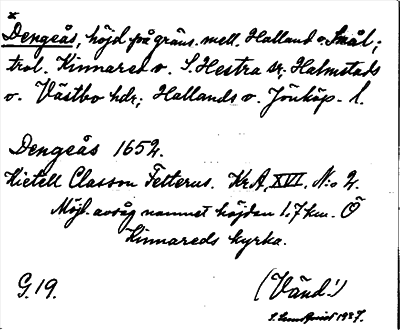 x
Dengeås, höjd på gräns. mell. Halland o. Smål.;
trol. Kinnared o. S. Hestra sr; Halmstads
o. Västbo hdr; Hallands o. Jönköp. l.
Dengeås 1652.
Kietell Classon Felterus. Kr. A, XVI. N:o 2.
Möjl. avsåg namnet höjden 1.7 km. Ö
Kinnareds kyrka.
G. 19.
(Vänd!)
1927.